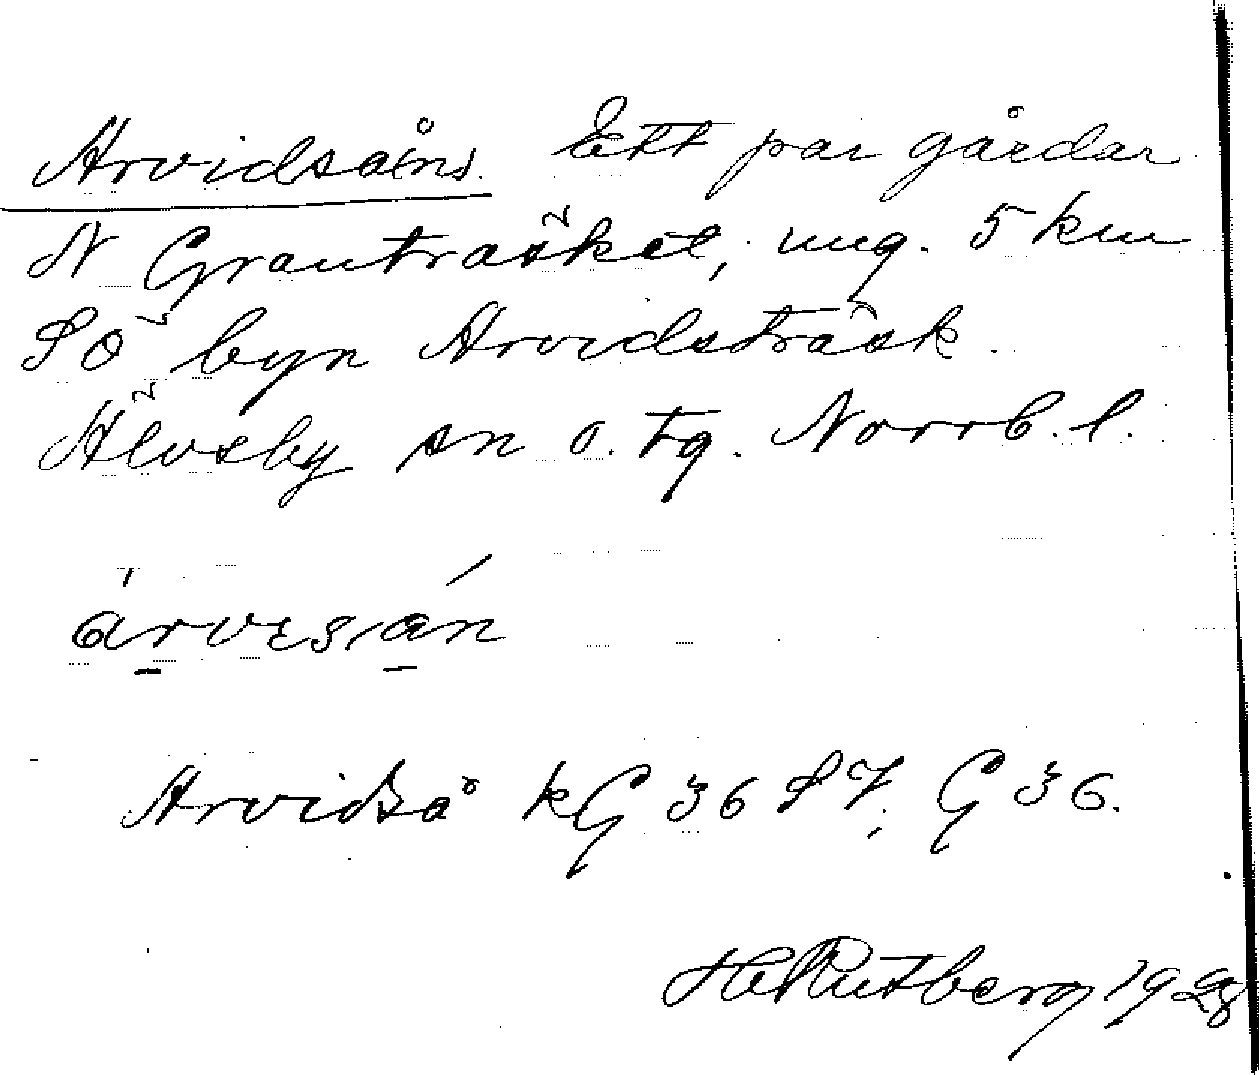 Arvidså(n). Ett par gårdar
N Granträsket, ung. 5 km
SÖ byn Arvidsträsk.
Älvsby sn o. tg. Norrb. l.
árves,án
Arvidså kG 36 SV, G 36.
H Rutberg 1928